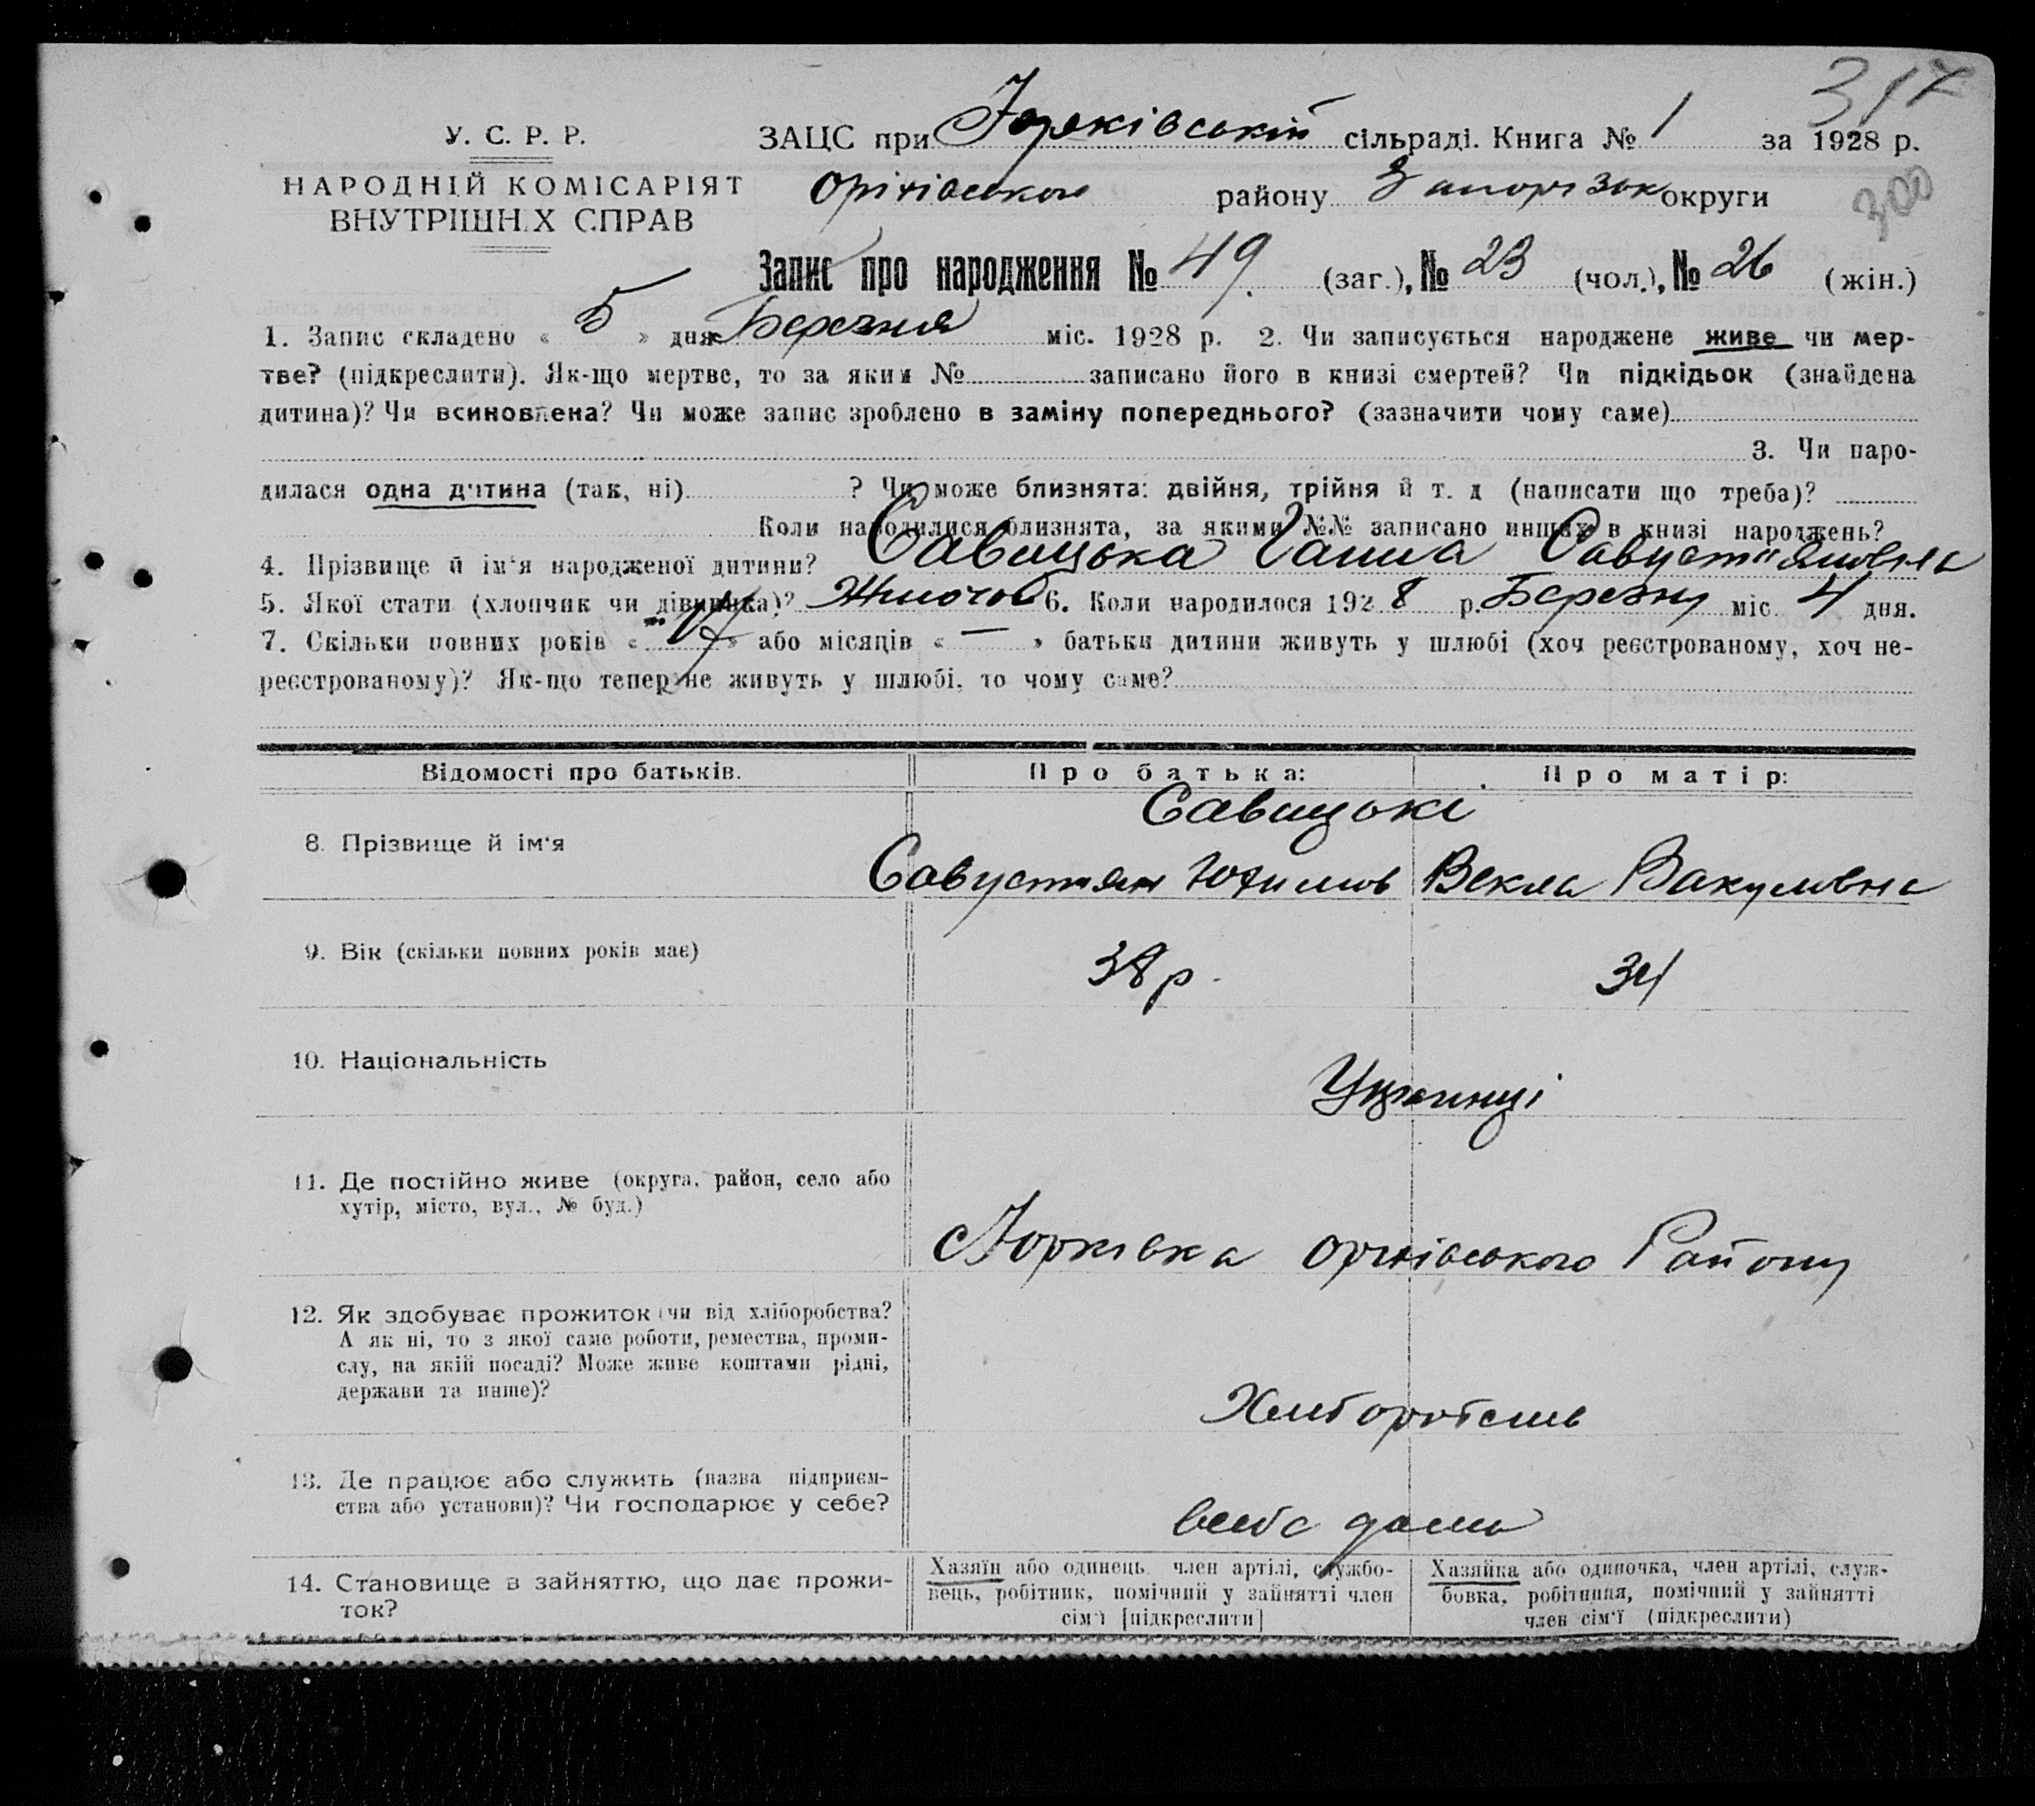 317
У. С. Р. Р.
ЗАЦС при Юрківській сільраді. Книга № 1 за 1928 р.
НАРОДНІЙ КОМІСАРІЯТ
ВНУТРІШНІХ СПРАВ
Оріхівського району Запорізьк округи
300
Запис про народження № 49 (заг.), № 23 (чол.), № 26 (жін.)
1. Запис складено « 5 » дня Березня міс. 1928 р. 2. Чи записується народжене живе чи мер-
тве? (підкреслити). Як-що мертве, то за яким № записано його в книзі смертей? Чи підкідьок (знайдена
дитина)? Чи всиновлена? Чи може запис зроблено в заміну попереднього? (зазначити чому саме)
3. Чи наро-
дилася одна дитина (так, ні) ? Чи може близнята: двійня, трійня й т. д (написати що треба)?
Коли народилися близнята, за якими №№ записано инших в книзі народжень?
4. Прізвище й ім'я народженої дитини? Савицька Ганна Савустияновна
5. Якої стати (хлопчик чи дівчинка)? Жиночої 6. Коли народилося 1928 р. Березня міс. 4 дня.
7. Скільки повних років « 17 » або місяців « — » батьки дитини живуть у шлюбі (хоч реєстрованому, хоч не-
реєстрованому)? Як-що тепер не живуть у шлюбі, то чому саме?
Відомості про батьків. Про батька: Про матір:
Савицькі
8. Прізвище й ім'я Савустиян Юхимов Векла Вакуловна
9. Вік (скільки повних років має) 38 р. 34
10. Національність Українці
11. Де постійно живе (округа, район, село або
хутір, місто, вул., № буд.)
Юрківка Оріхівського Району
12. Як здобуває прожиток (чи від хліборобства?
А як ні, то з якої саме роботи, ремества, проми-
слу, на якій посаді? Може живе коштами рідні,
держави та инше)?
Хлиборобств
13. Де працює або служить (назва підприєм-
ства або установи)? Чи господарює у себе?
всебе дома
14. Становище в зайняттю, що дає прожи-
ток?
Хазяїн або одинець член артілі, службо-
вець, робітник, помічний у зайнятті член
сім'ї [підкреслити]
Хазяйка або одиночка, член артілі, служ-
бовка, робітниця, помічний у зайнятті
член сім'ї (підкреслити)